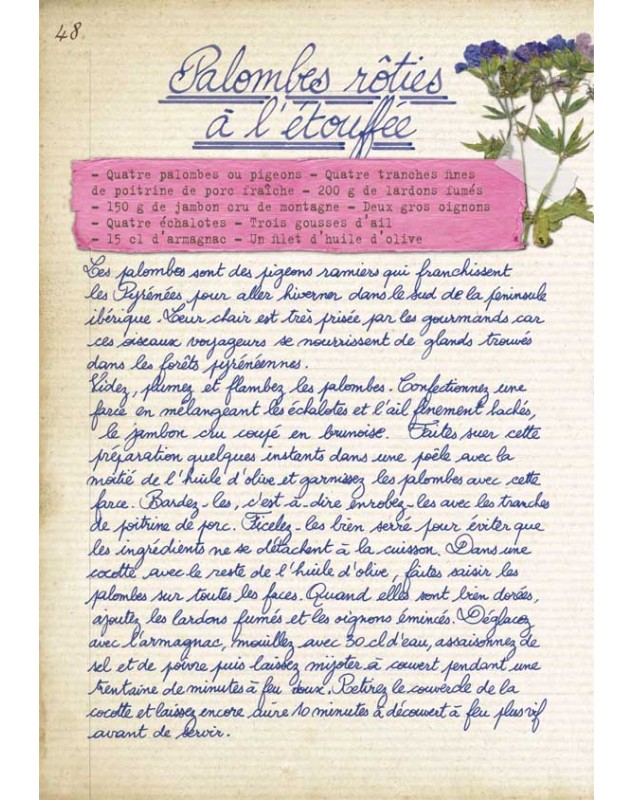 48
Palombes rôties
à l'étouffée
- Quatre palombes ou pigeons - Quatre tranches fines
de poitrine de porc fraîche - 200 g de lardons fumés
- 150 g de jambon cru de montagne - Deux gros oignons
- Quatre échalotes - Trois gousses d'ail
- 15 cl d'armagnac - Un filet d'huile d'olive
Les palombes sont des pigeons ramiers qui franchissent
les Pyrénées pour aller hiverner dans le sud de la péninsule
ibérique. Leur chair est très prisée par les gourmands car
ces oiseaux voyageurs se nourrissent de glands trouvés
dans les forêts pyrénéennes.
Videz, plumez et flambez les palombes. Confectionnez une
farce en mélangeant les échalotes et l'ail finement hachés,
le jambon cru coupé en brunoise. Faites suer cette
préparation quelques instants dans une poêle avec la
moitié de l'huile d'olive et garnissez les palombes avec cette
farce. Bardez-les, c'est-à-dire enrobez-les avec les tranches
de poitrine de porc. Ficelez-les bien serré pour éviter que
les ingrédients ne se détachent à la cuisson. Dans une
cocotte avec le reste de l'huile d'olive, faites saisir les
palombes sur toutes les faces. Quand elles sont bien dorées,
ajoutez les lardons fumés et les oignons émincés. Déglacez
avec l'armagnac, mouillez avec 30 cl d'eau, assaisonnez de
sel et de poivre puis laissez mijoter à couvert pendant une
trentaine de minutes à feu doux. Retirez le couvercle de la
cocotte et laissez encore cuire 10 minutes à découvert à feu plus vif
avant de servir.